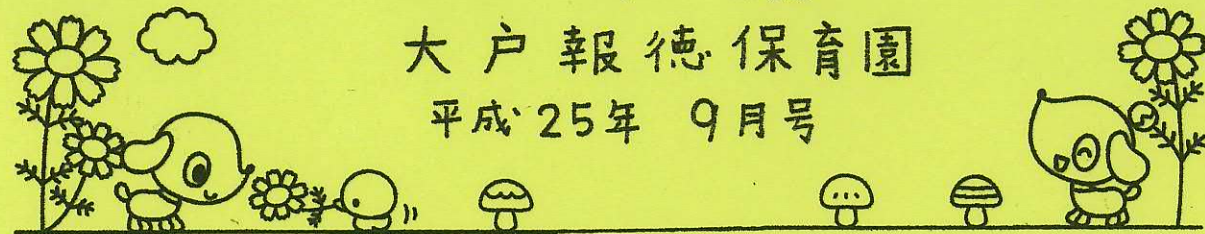 大戸報徳保育園
平成25年 9月号